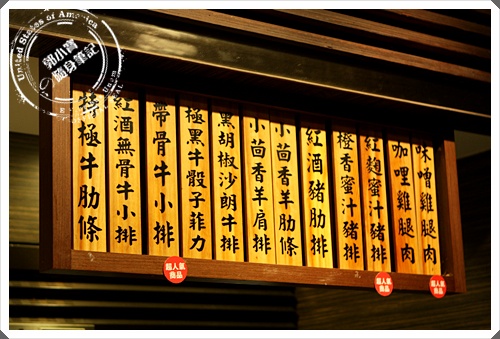 United States of America
郭小寶
隨身筆記
特極牛肋條
紅酒無骨牛小排
帶骨牛小排
極黑牛骰子菲力
黑胡椒沙朗牛排
小茴香羊肩排
小茴香羊肋條
紅酒豬肋排
橙香蜜汁豬排
紅麴蜜汁雞排
咖哩雞腿肉
味噌雞腿肉
超人氣
商品
超人氣
商品
超人氣
商品